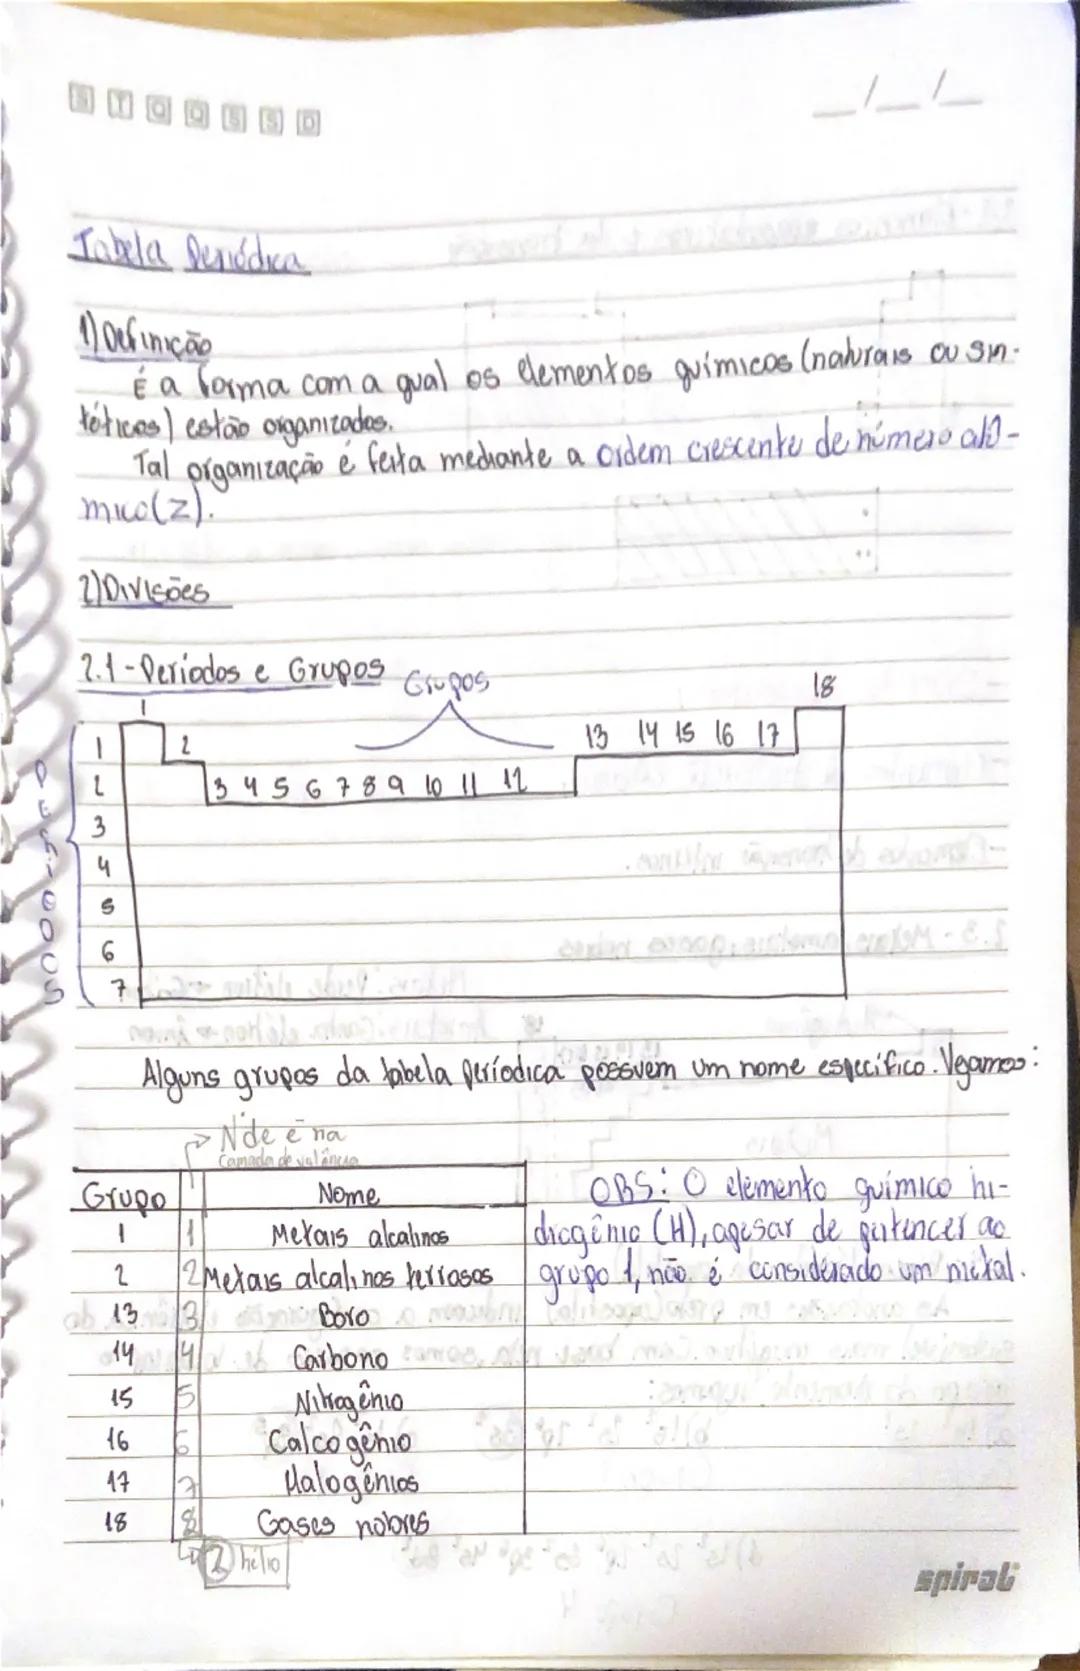 S T Q Q S S D
__/__/__
Tabela Periódica
1) Definição
É a forma com a qual os elementos químicos (naturais ou sin-
téticos) estão organizados.
Tal organização é feita mediante a ordem crescente de número atô-
mico (Z).
2) Divisões
2.1 - Períodos e Grupos
Grupos
18
1
1 2 13 14 15 16 17
2 3 4 5 6 7 8 9 10 11 12
3
4
5
6
7
PERÍODOS
Alguns grupos da tabela periódica possuem um nome específico. Vejamos:
Nº de é na
Camada de valência
Grupo Nome
1 1 Metais alcalinos
2 2 Metais alcalinos terrosos
13 3 Boro
14 4 Carbono
15 5 Nitrogênio
16 6 Calcogênio
17 7 Halogênios
18 8 Gases nobres
2 hélio
OBS: O elemento químico hi-
drogênio (H), apesar de pertencer ao
grupo 1, não é considerado um metal.
spiral